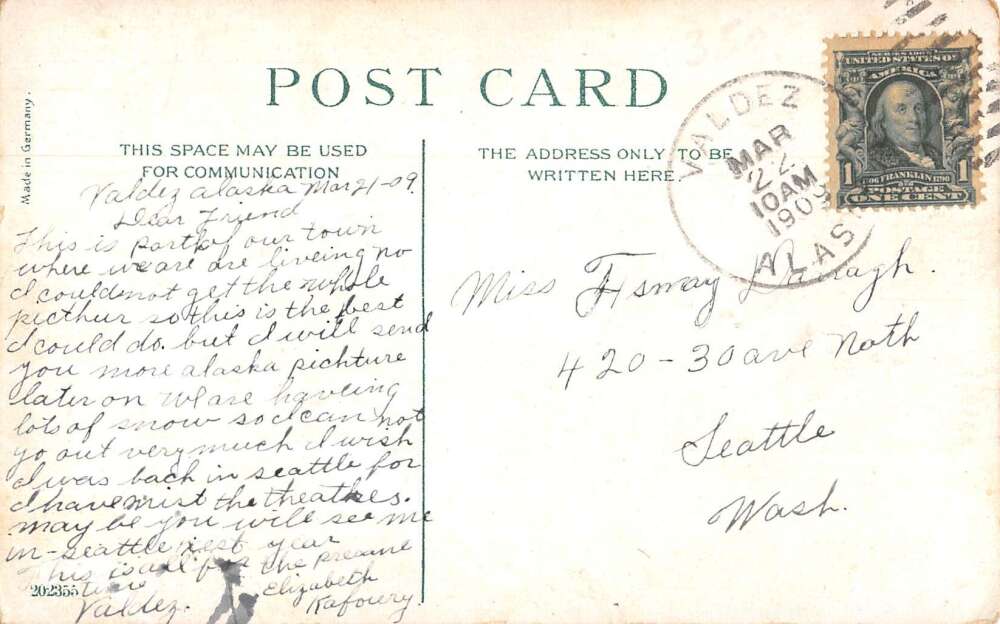 POST CARD
Made in Germany.
THIS SPACE MAY BE USED
FOR COMMUNICATION
THE ADDRESS ONLY TO BE
WRITTEN HERE.
VALDEZ
MAR
22
10 AM
1909
ALAS
SERIES 1902
UNITED STATES OF
AMERICA
1 FRANKLIN 1
1706 1790
POSTAGE
ONE CENT
Valdez alaska Mar 21-09.
Dear Friend
This is part of our town
where we are are liveing no
I could not get the whole
picthur so this is the best
I could do. but I will send
you more alaska pichture
later on We are haveing
lots of snow so I can not
go out very much I wish
I was back in seattle for
I have mist the theatres.
may be you will see me
in-seattle next year
This is all for the
time
Valdez.
Elizabeth
Kafoury.
202355
Miss
420-30 ave Noth
Seattle
Wash.